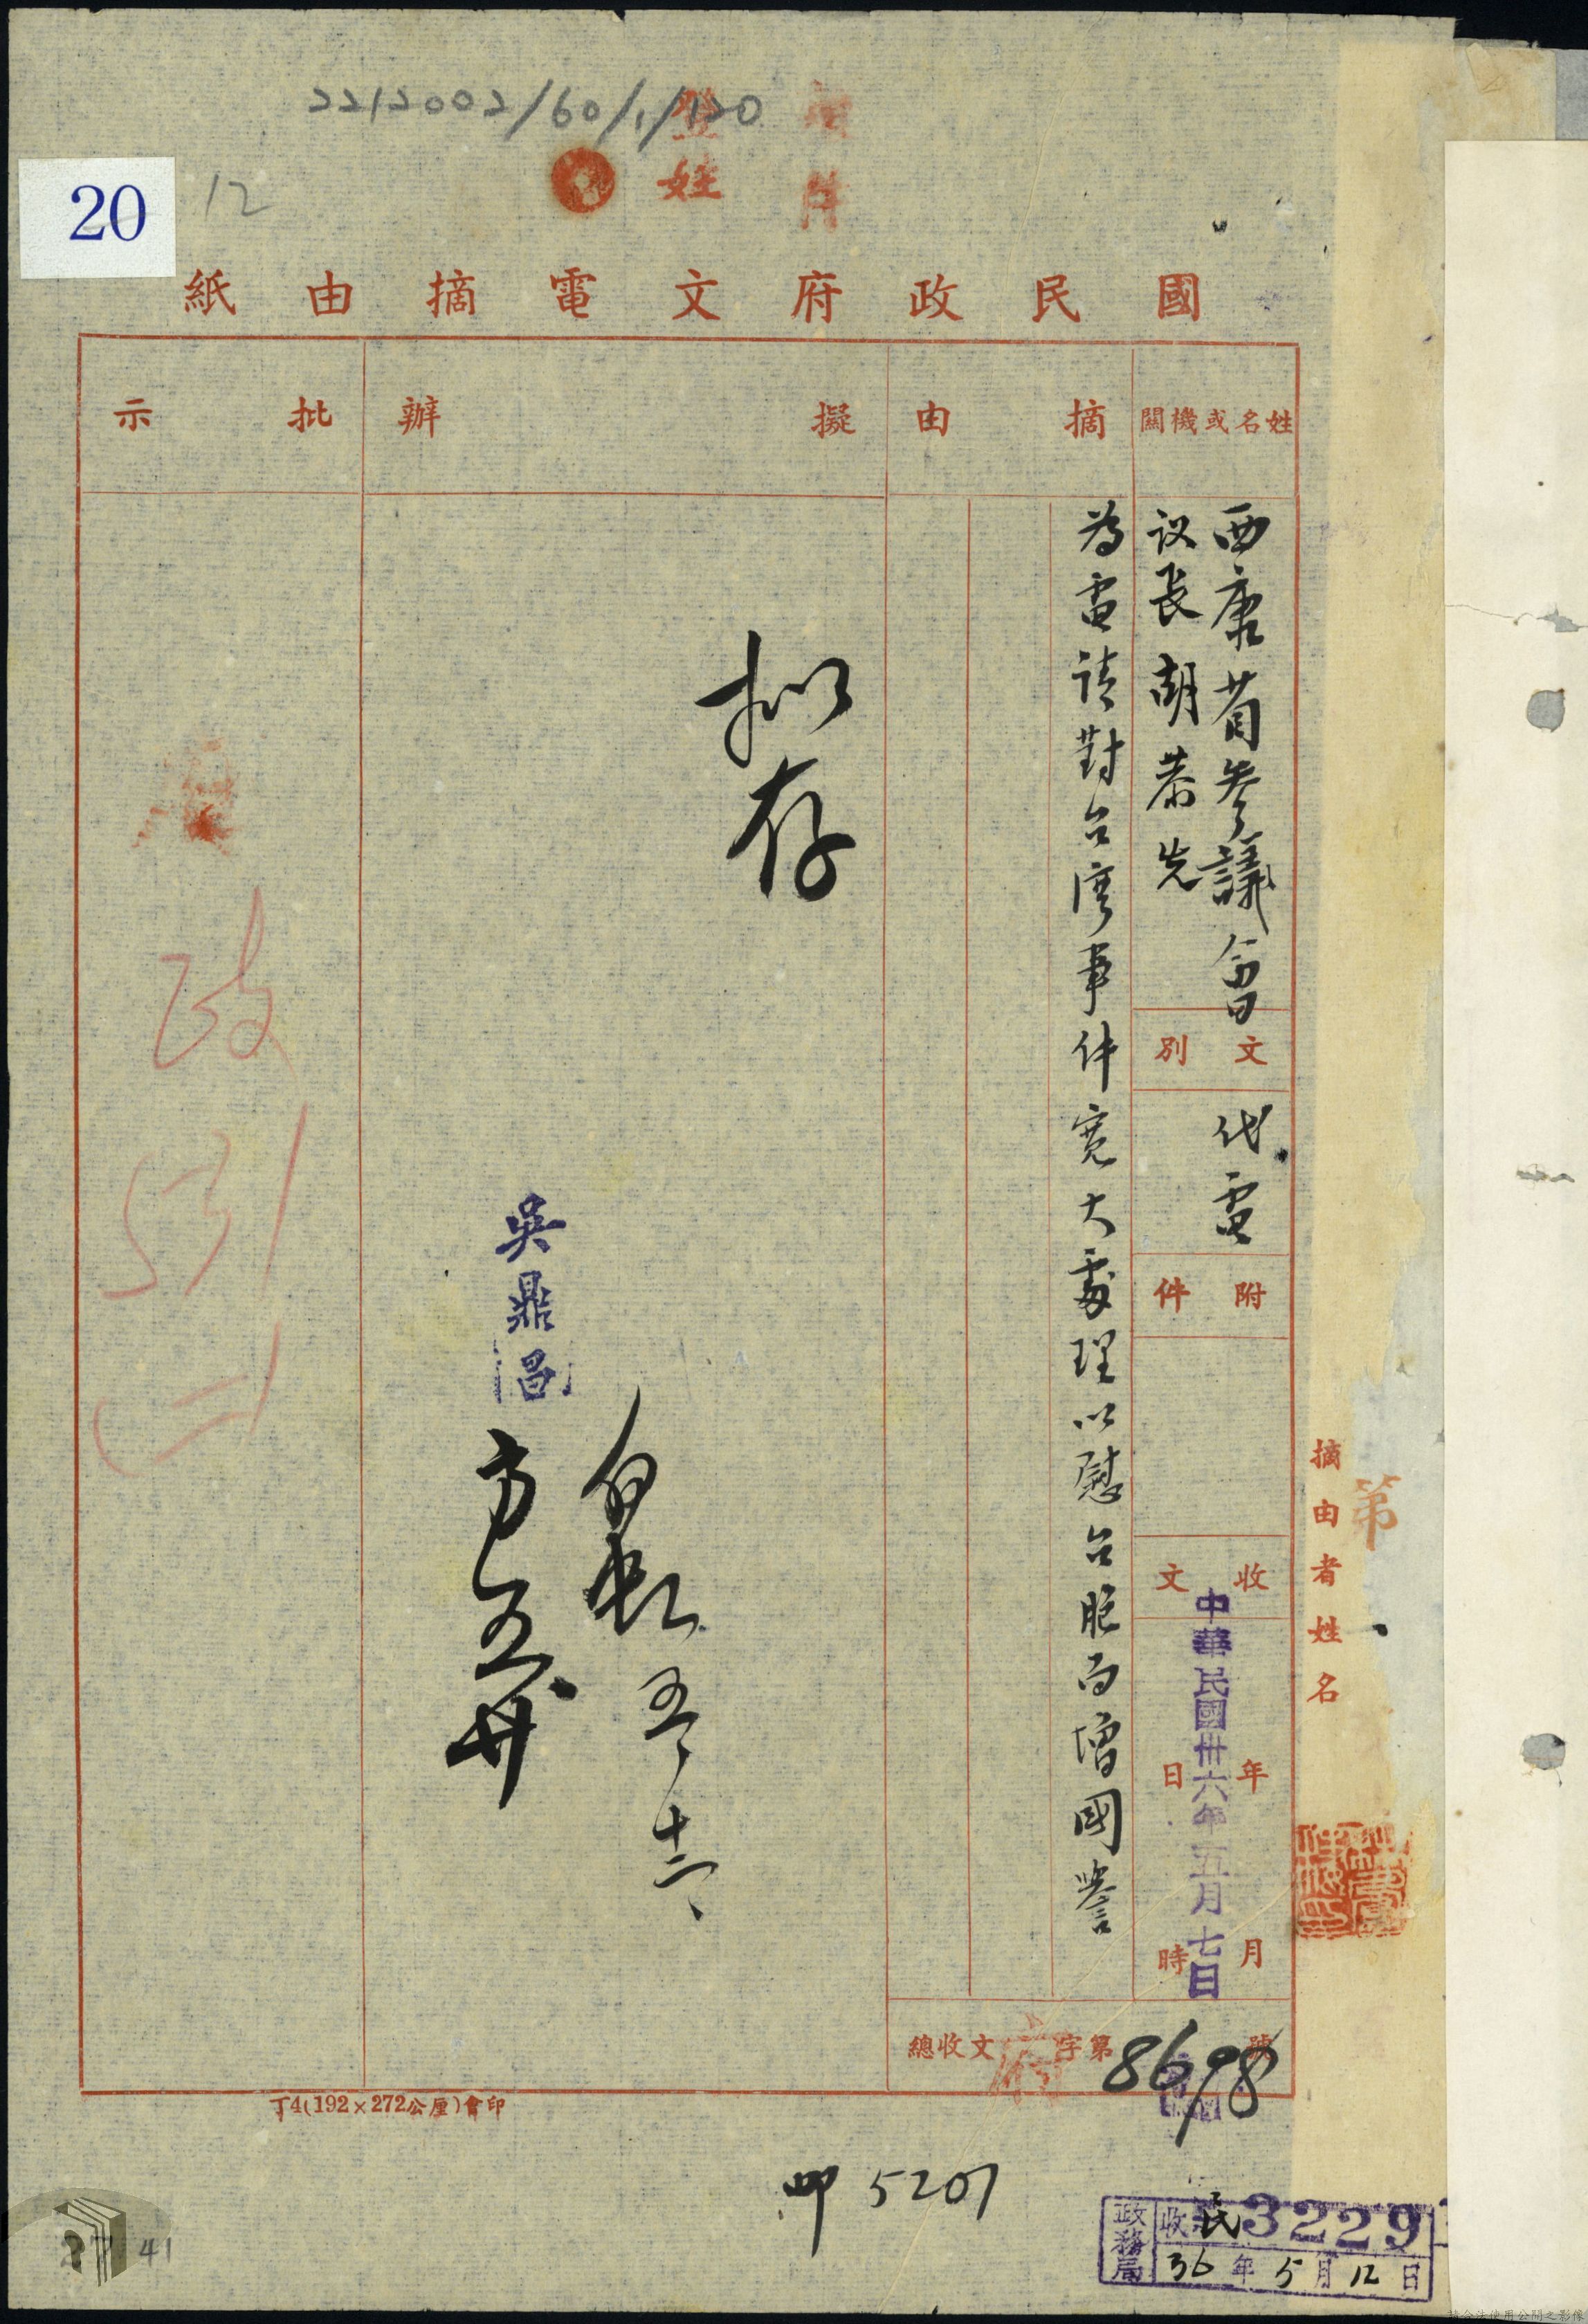 2212002/60/1/120
登
姓
20
12
國民政府文電摘由紙
姓名或機關
西康省參議會
议長胡恭先
文別
代電
附件
收文
年月日時
中華民國卅六年五月七日
摘由
為電請對台灣事件寬大處理以慰台胞而增國譽
擬辦
拟存
五、十二、
吳鼎昌
批示
政
總收文府字第8698號
丁4(192×272公厘)會印
摘由者姓名
第
5207
政務局
收民3229
36年5月12日
41